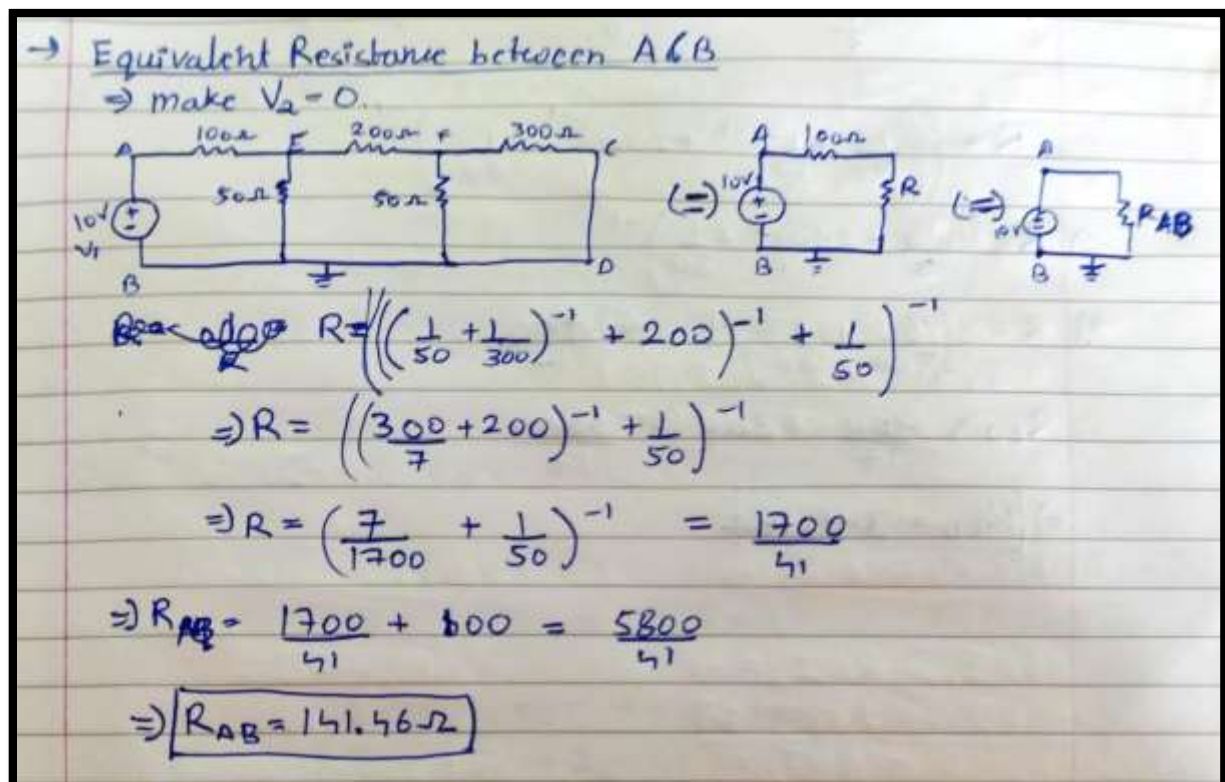 → Equivalent Resistance between A & B
⇒ make V₂ = 0.
A 100Ω E 200Ω F 300Ω C
50Ω 50Ω
10V
V₁
B D
A 100Ω
(=) 10V R
B
A
(⇒) 10V R_AB
B
R = (((1/50 + 1/300)⁻¹ + 200)⁻¹ + 1/50)⁻¹
⇒ R = ((300/7 + 200)⁻¹ + 1/50)⁻¹
⇒ R = (7/1700 + 1/50)⁻¹ = 1700/41
⇒ R_AB = 1700/41 + 100 = 5800/41
⇒ R_AB = 141.46Ω